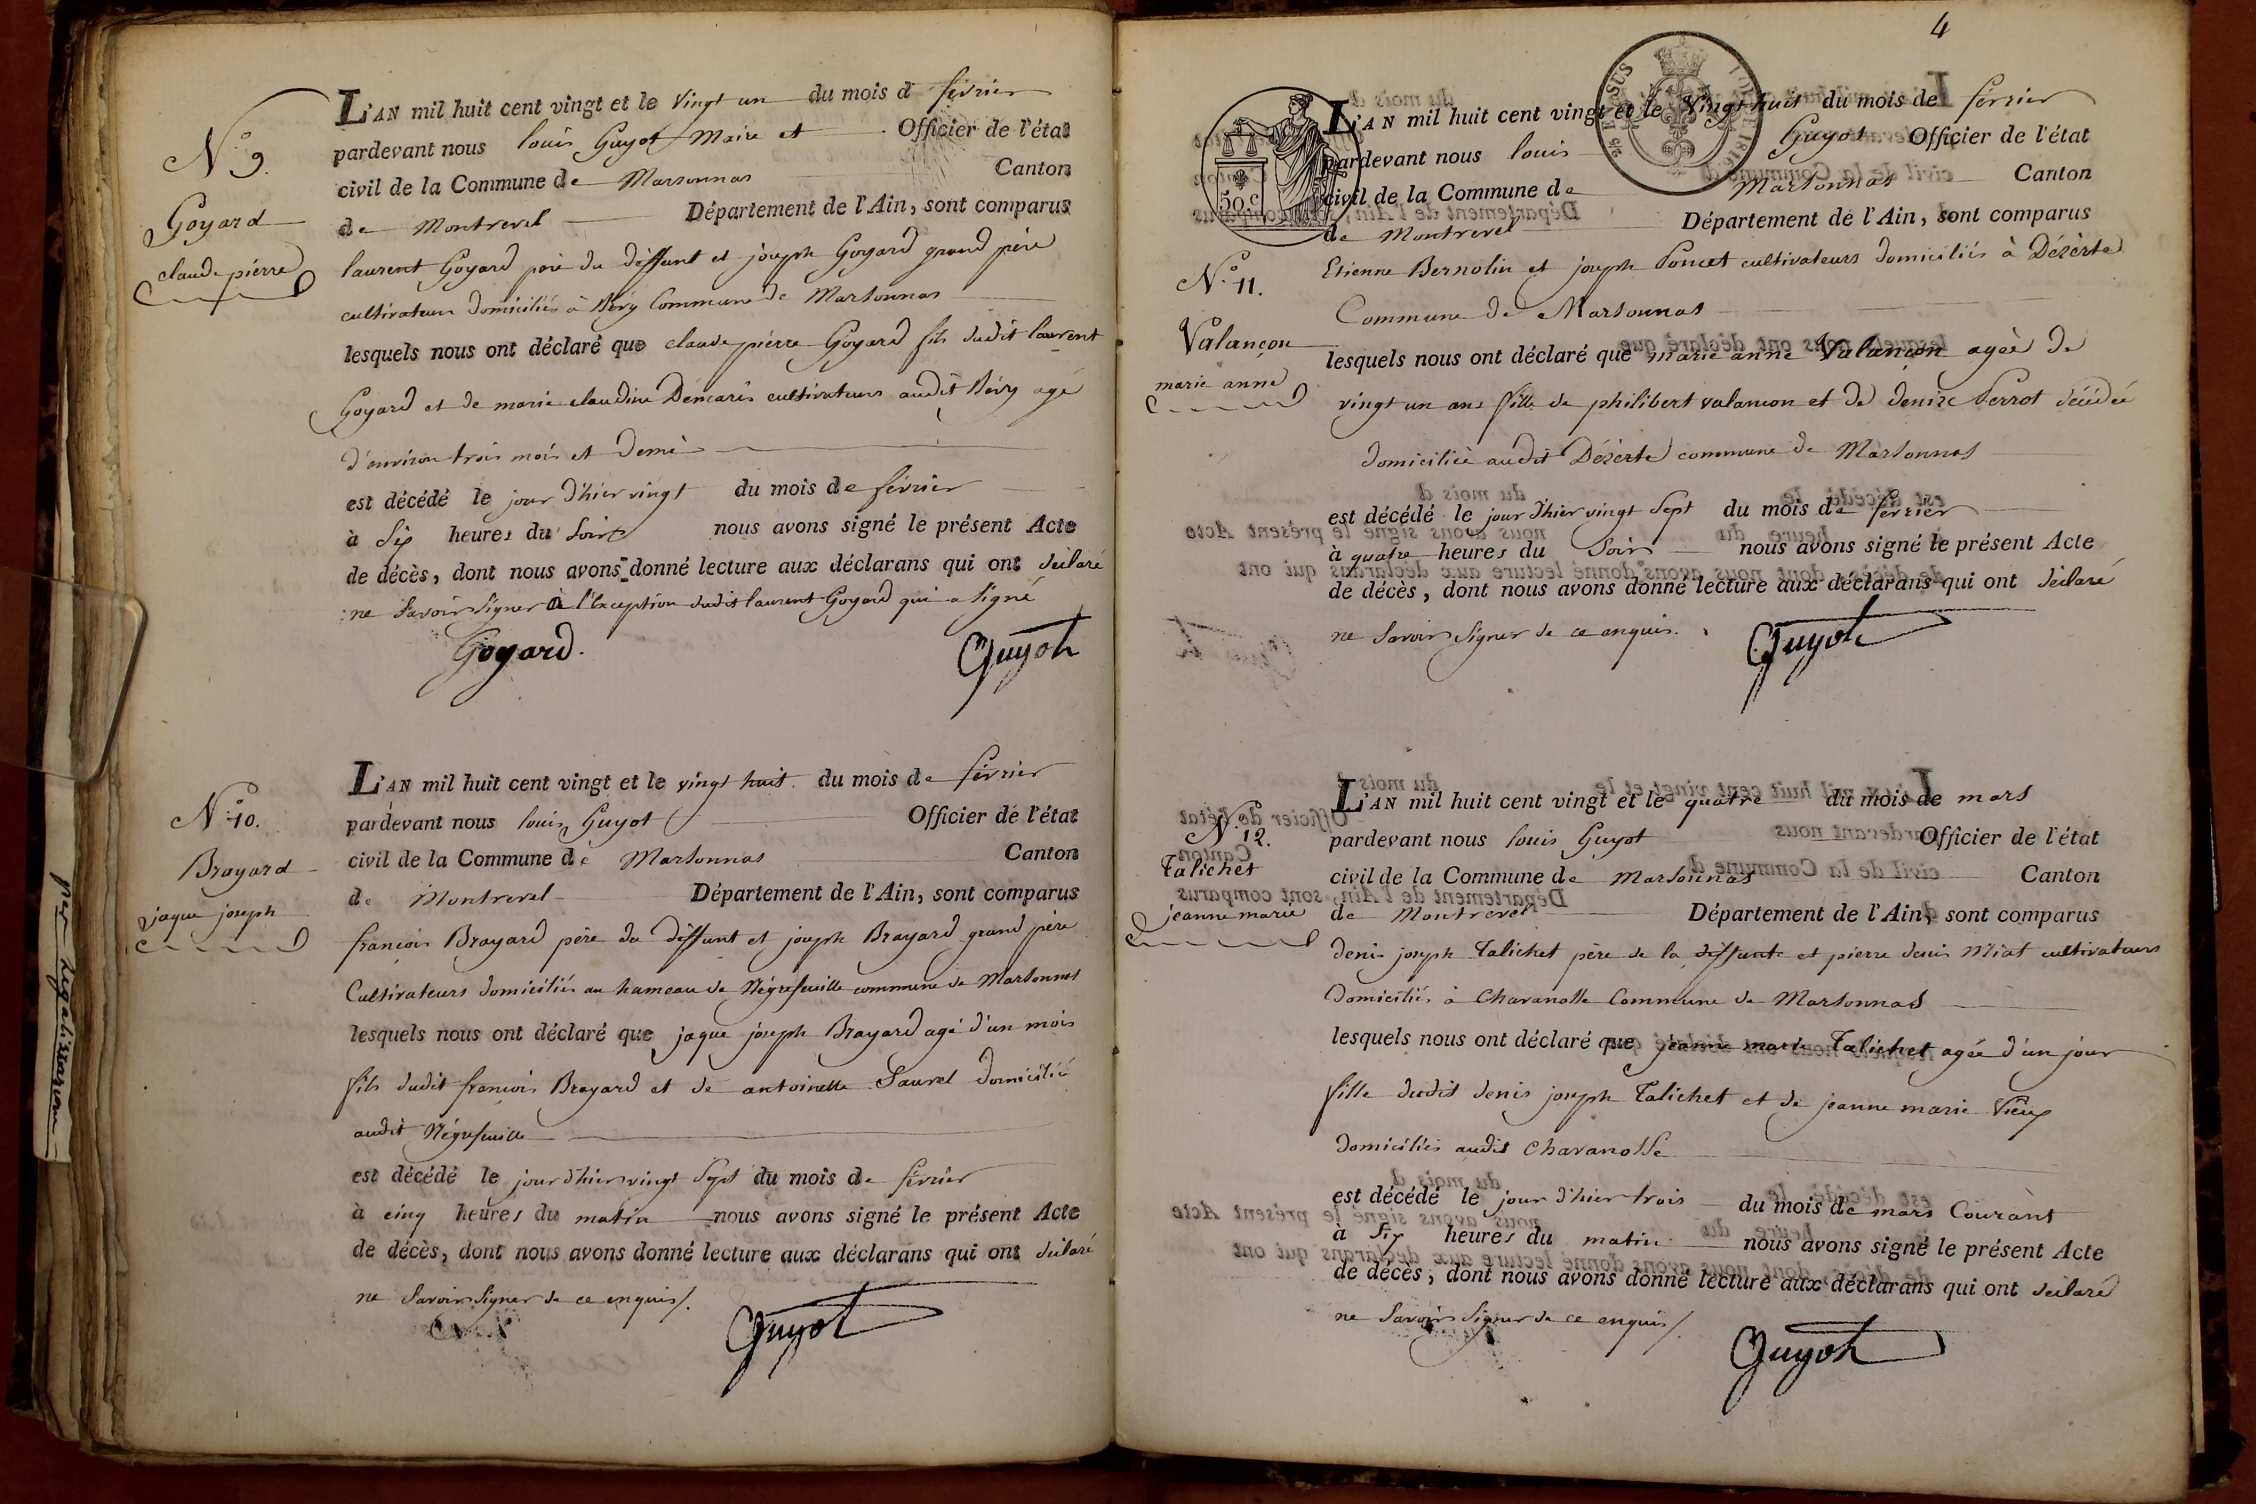 N.o 9.
Goyard
claude pierre
L'AN mil huit cent vingt et le vingt un du mois d février
pardevant nous louis Guyot Maire et Officier de l'état
civil de la Commune de Marsonnas Canton
de Montrevel Département de l'Ain, sont comparus
laurent Goyard père du deffunt et joseph Goyard grand père
cultivateurs domiciliés à Béry Commune de Marsonnas
lesquels nous ont déclaré que claude pierre Goyard fils dudit laurent
Goyard et de marie claudine Démaris cultivateurs audit Béry agé
d'environ trois mois et demi
est décédé le jour d'hier vingt du mois de février
à Six heures du Soir nous avons signé le présent Acte
de décès, dont nous avons donné lecture aux déclarans qui ont déclaré
ne Savoir Signer à l'Exception dudit laurent Goyard qui a Signé
Goyard. Guyot
N.o 10.
Brayard
jaque joseph
L'AN mil huit cent vingt et le vingt huit du mois de février
pardevant nous louis Guyot Officier de l'état
civil de la Commune de Marsonnas Canton
de Montrevel Département de l'Ain, sont comparus
françois Brayard père du deffunt et joseph Brayard grand père
Cultivateurs domiciliés au hameau de Négrefeuille commune de Marsonnas
lesquels nous ont déclaré que jaque joseph Brayard agé d'un mois
fils dudit françois Brayard et de antoinette Saurel domicilié
audit Négrefeuille
est décédé le jour d'hier vingt Sept du mois de février
à cinq heures du matin nous avons signé le présent Acte
de décès, dont nous avons donné lecture aux déclarans qui ont déclaré
ne Savoir Signer de ce enquis/.
Guyot
per legalissazione
4
50 C
N.o 11.
Valançon
marie anne
L'AN mil huit cent vingt et le Vingt huit du mois de février
pardevant nous louis Guyot Officier de l'état
civil de la Commune de Marsonnas Canton
de Montrevel Département de l'Ain, sont comparus
Etienne Bernolin et joseph Poncet cultivateurs domiciliés à Dézèrte
Commune de Marsonnas
lesquels nous ont déclaré que marie anne Valançon agée de
vingt un ans fille de philibert valancon et de denize Perrot décédée
domiciliée audit Dézèrte commune de Marsonnas
est décédé le jour d'hier vingt Sept du mois de février
à quatre heures du Soir nous avons signé le présent Acte
de décès, dont nous avons donné lecture aux déclarans qui ont déclaré
ne Savoir Signer de ce enquis.
Guyot
N.o 12.
Talichet
jeanne marie
L'AN mil huit cent vingt et le quatre du mois de mars
pardevant nous louis Guyot Officier de l'état
civil de la Commune de Marsonnas Canton
de Montrevel Département de l'Ain, sont comparus
denis joseph Talichet père de la deffunte et pierre denis Miat cultivateurs
domiciliés à Chavanolle Commune de Marsonnas
lesquels nous ont déclaré que jeanne marie Talichet agée d'un jour
fille dudit denis joseph Talichet et de jeanne marie Vieux
domiciliés audit Chavanolle
est décédé le jour d'hier trois du mois de mars Courant
à Six heures du matin nous avons signé le présent Acte
de décès, dont nous avons donné lecture aux déclarans qui ont déclaré
ne Savoir Signer de ce enquis/.
Guyot